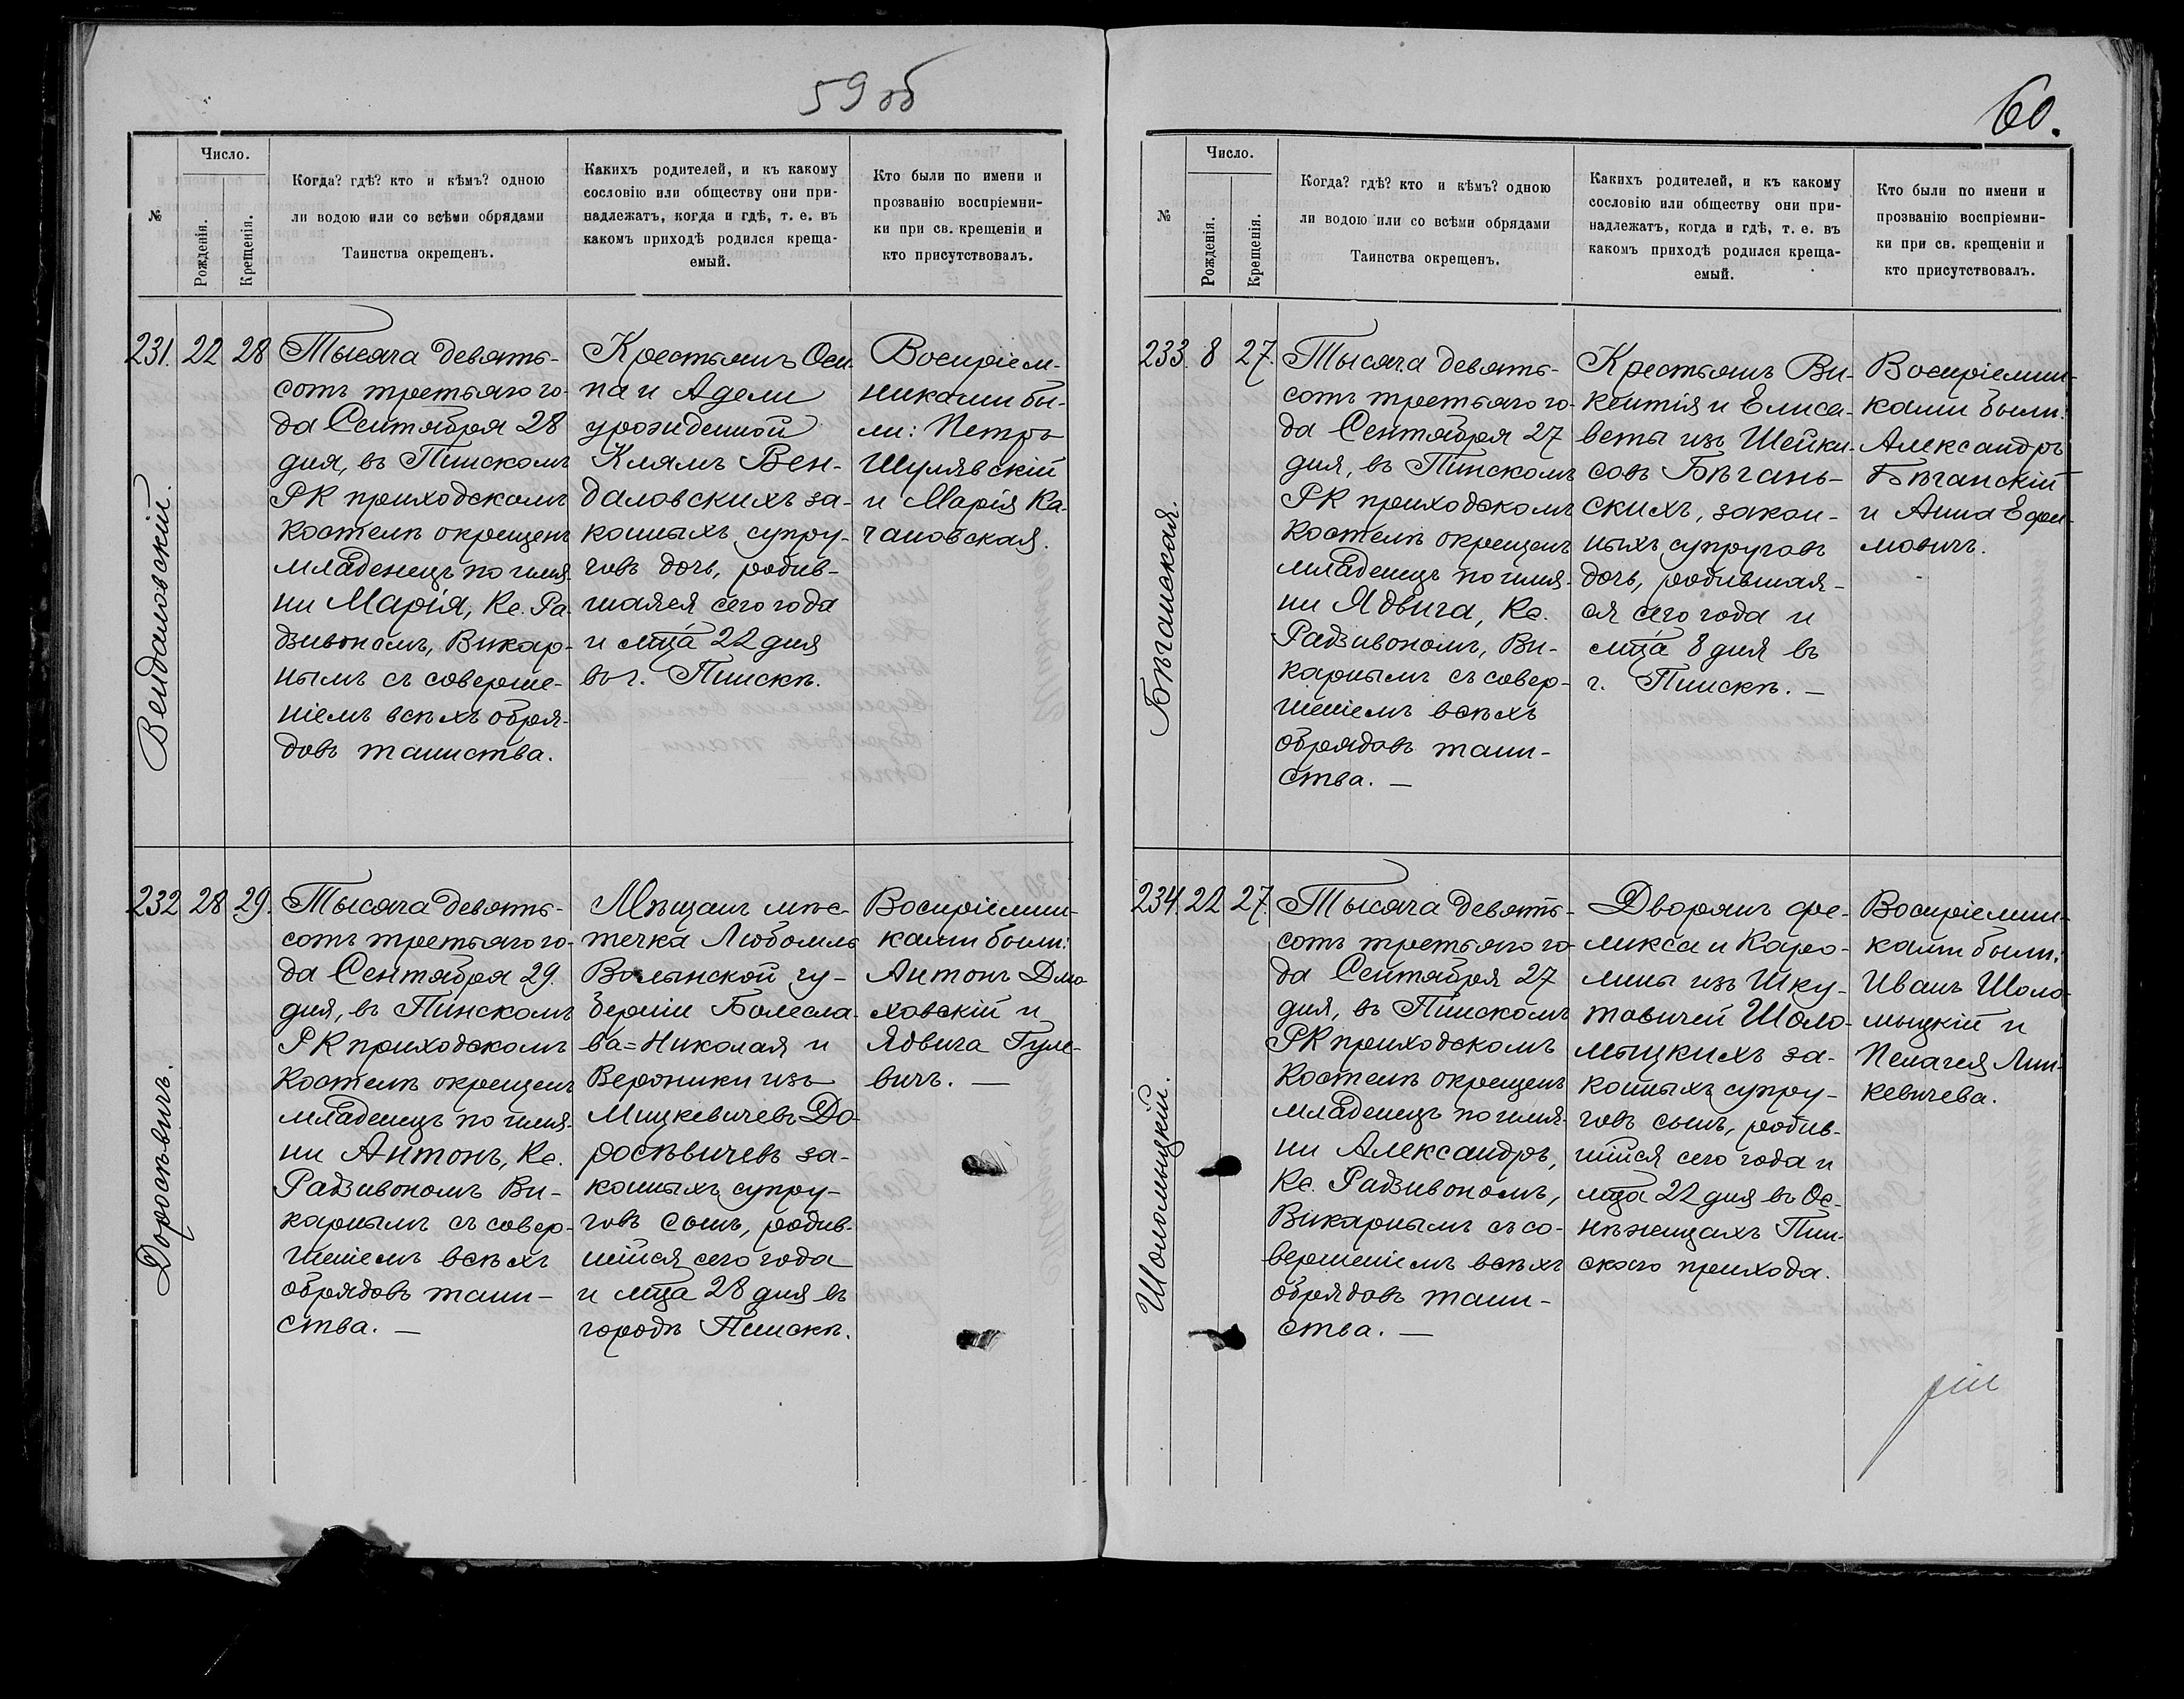 59 об
№
Число.
Рожденія.
Крещенія.
Когда? гдѣ? кто и кѣмъ? одною
ли водою или со всѣми обрядами
Таинства окрещенъ.
Какихъ родителей, и къ какому
сословію или обществу они при-
надлежатъ, когда и гдѣ, т. е. въ
какомъ приходѣ родился креща-
емый.
Кто были по имени и
прозванію воспріемни-
ки при св. крещеніи и
кто присутствовалъ.
231. 22 28
Вендаловскій.
Тысяча девять-
сотъ третьяго го-
да Сентября 28
дня, въ Пинскомъ
РК приходскомъ
костелѣ окрещенъ
младенецъ по имя-
ни Марія, Кс. Ра-
дзивономъ, Викар-
нымъ съ соверше-
ніемъ всѣхъ обря-
довъ таинства.
Крестьянъ Оси-
па и Адели
урожденной
Клямъ Вен-
даловскихъ за-
конныхъ супру-
говъ дочь, родив-
шаяся сего года
и мца 22 дня
въ г. Пинскѣ.
Воспріем-
никами бы-
ли: Петръ
Шулявскій
и Марія Ка-
чановская.
232 28 29.
Доросѣвичъ.
Тысяча девять-
сотъ третьяго го-
да Сентября 29.
дня, въ Пинскомъ
РК приходскомъ
костелѣ окрещенъ
младенецъ по имя-
ни Антонъ, Кс.
Радзивономъ Ви-
карнымъ съ совер-
шеніемъ всѣхъ
обрядовъ таин-
ства. —
Мѣщанъ мѣс-
течка Любомль
Волынской гу-
берніи Болесла-
ва=Николая и
Вероники изъ
Мицкевичевъ До-
росѣвичевъ за-
конныхъ супру-
говъ сынъ, родив-
шійся сего года
и мца 28 дня въ
городѣ Пинскѣ.
Воспріемни-
ками были:
Антонъ Дмо-
ховскій и
Ядвига Гуле-
вичъ. —
60.
№
Число.
Рожденія.
Крещенія.
Когда? гдѣ? кто и кѣмъ? одною
ли водою или со всѣми обрядами
Таинства окрещенъ.
Какихъ родителей, и къ какому
сословію или обществу они при-
надлежатъ, когда и гдѣ, т. е. въ
какомъ приходѣ родился креща-
емый.
Кто были по имени и
прозванію воспріемни-
ки при св. крещеніи и
кто присутствовалъ.
233. 8 27.
Бѣганская.
Тысяча девять-
сотъ третьяго го-
да Сентября 27
дня, въ Пинскомъ
РК приходскомъ
костелѣ окрещенъ
младенецъ по имя-
ни Ядвига, Кс.
Радзивономъ, Ви-
карнымъ съ совер-
шеніемъ всѣхъ
обрядовъ таин-
ства. —
Крестьянъ Ви-
кентія и Елиса-
веты изъ Шейки-
совъ Бѣгань-
скихъ, закон-
ныхъ супруговъ
дочь, родившая-
ся сего года и
мца 8 дня въ
г. Пинскѣ. —
Воспріемни-
ками были:
Александръ
Бѣганскій
и Анна Ефи-
мовичъ.
234. 22 27.
Шоломыцкій.
Тысяча девять-
сотъ третьяго го-
да Сентября 27
дня, въ Пинскомъ
РК приходскомъ
костелѣ окрещенъ
младенецъ по имя-
ни Александръ,
Кс. Радзивономъ,
Викарнымъ съ со-
вершеніемъ всѣхъ
обрядовъ таин-
ства. —
Дворянъ Фе-
ликса и Каро-
лины изъ Шку-
товичей Шоло-
мыцкихъ за-
конныхъ супру-
говъ сынъ, родив-
шійся сего года и
мца 22 дня въ Ос-
нѣжицахъ Пин-
скаго прихода.
Воспріемни-
ками были:
Иванъ Шоло-
мыцкій и
Пелагея Лин-
кевичева.